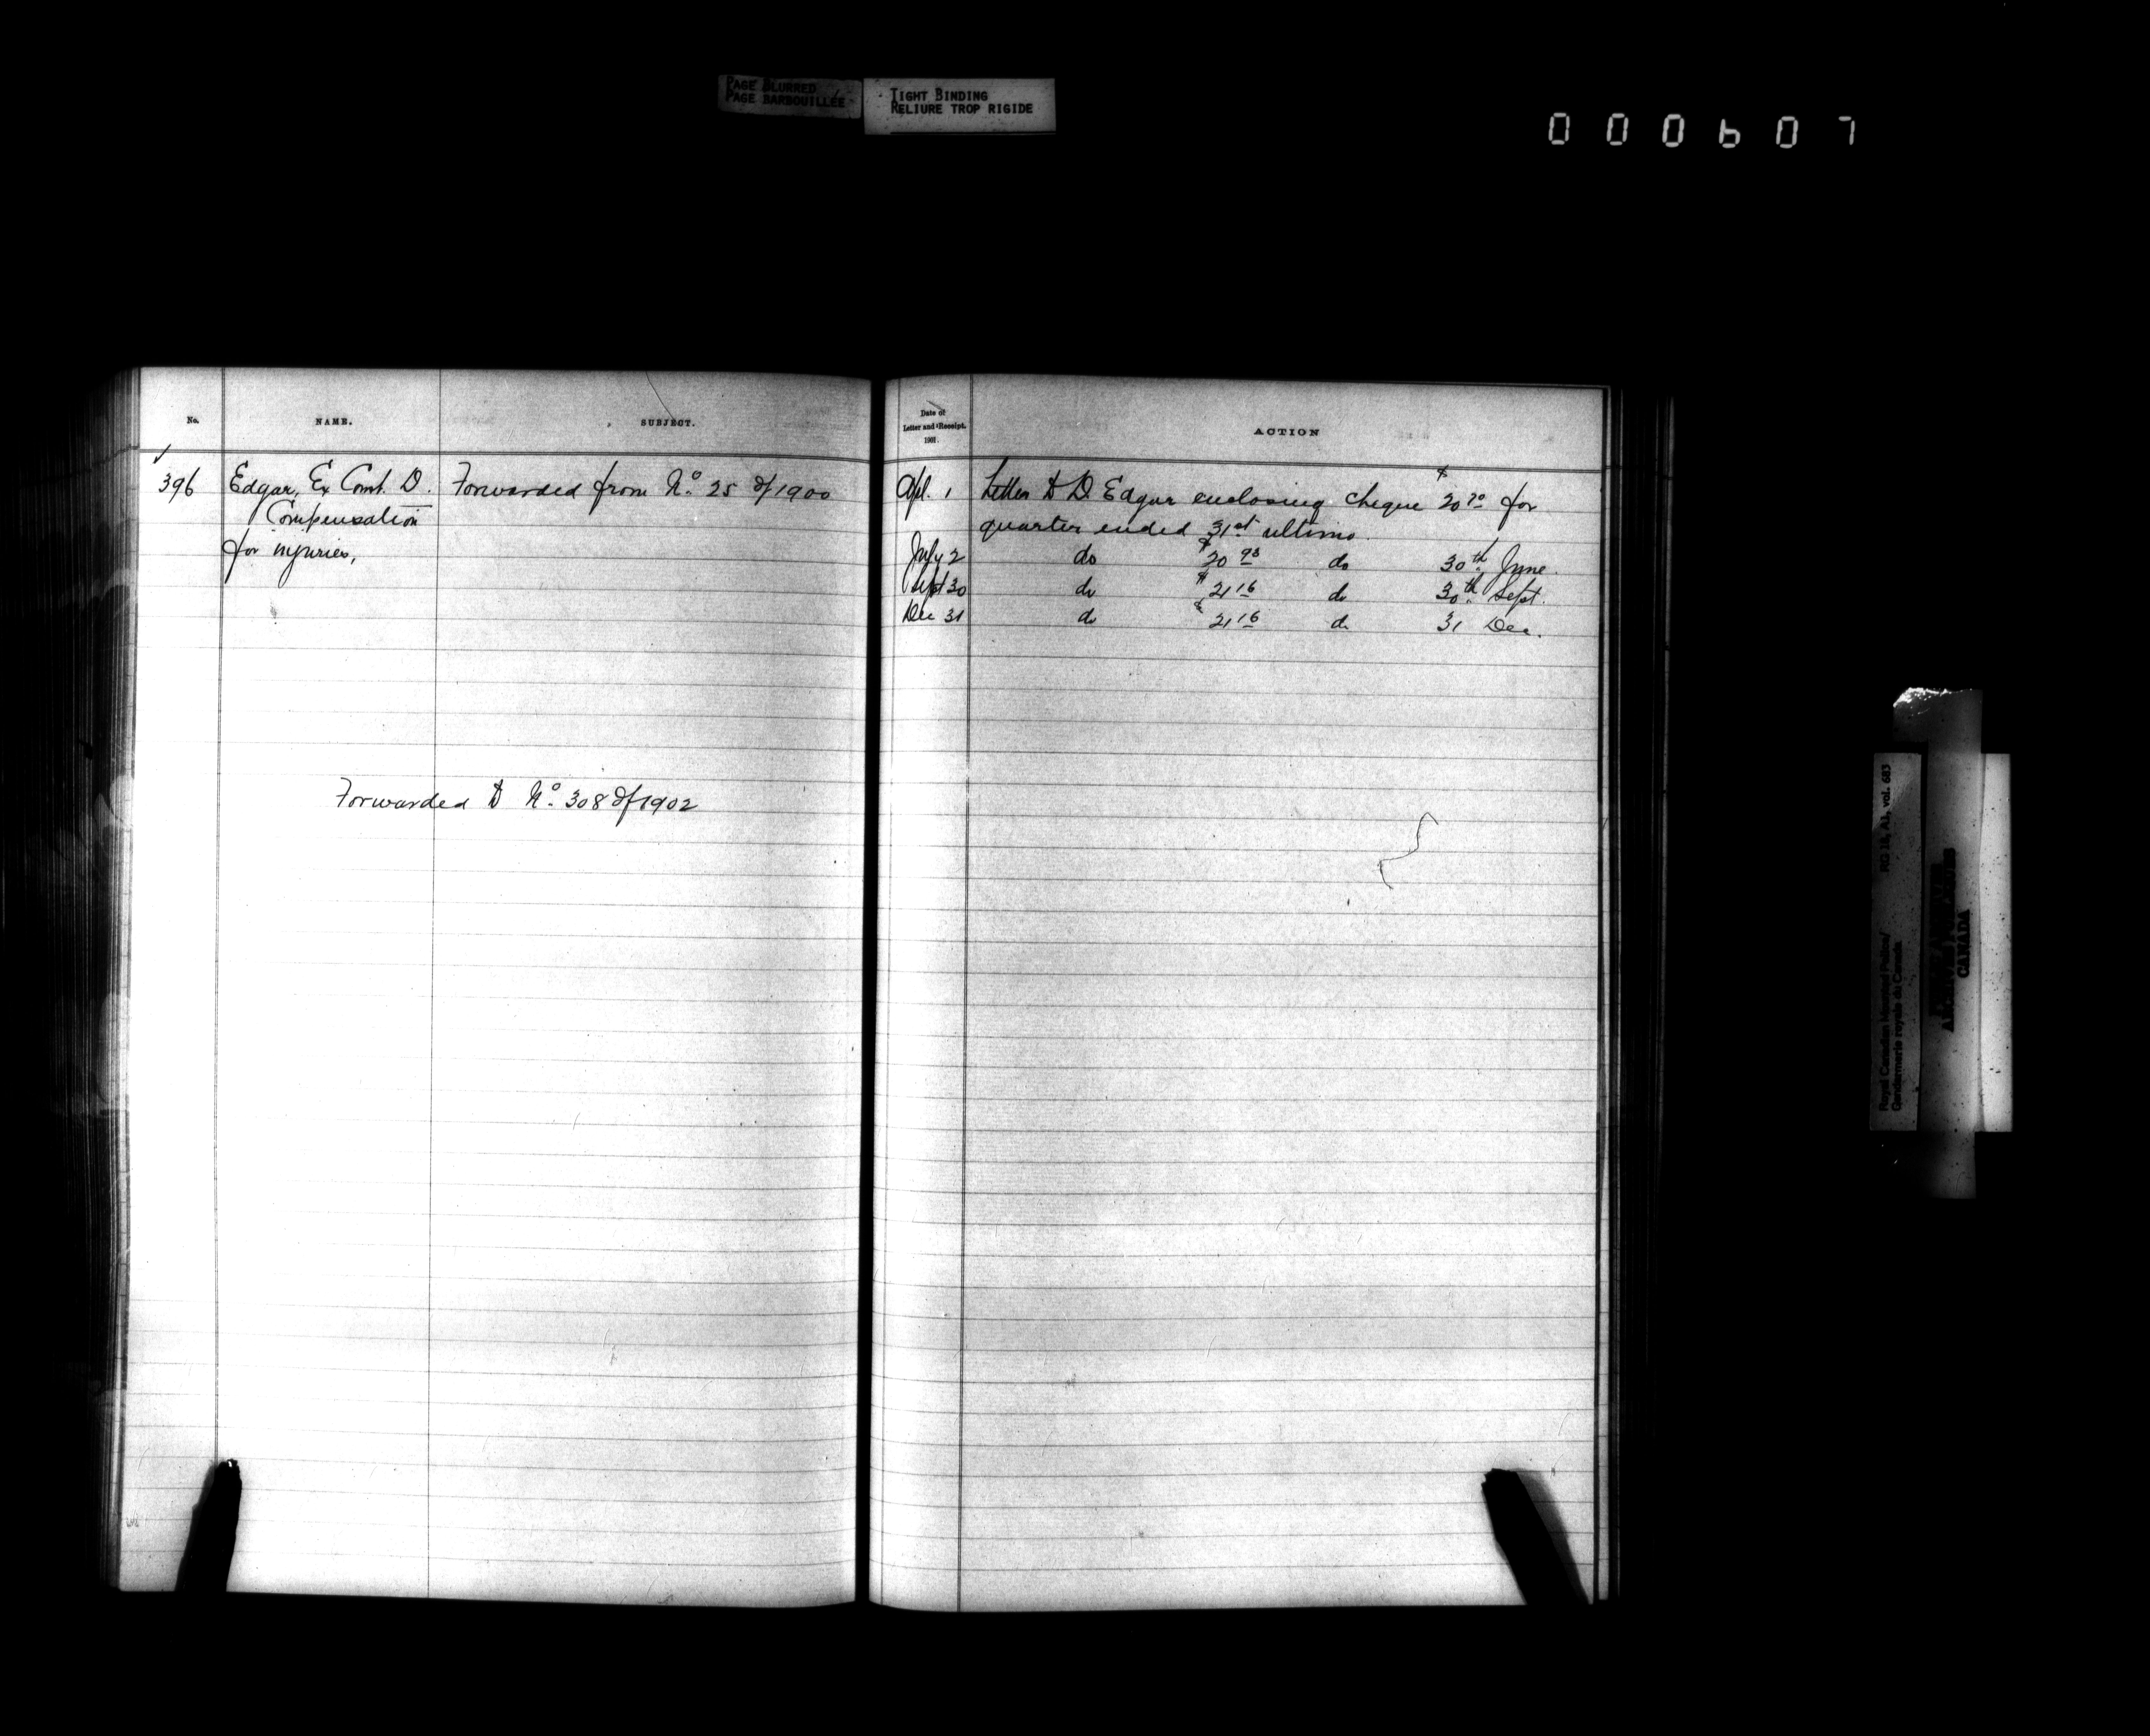 PAGE BLURRED
PAGE BARBOUILLÉE
TIGHT BINDING
RELIURE TROP RIGIDE
000607
No. NAME. SUBJECT.
396 Edgar, Ex Const. D. Forwarded from No. 25 of 1900
Compensation
for injuries,
Forwarded to No. 308 of 1902
Date of
Letter and Receipt.
1901.
ACTION
Apl. 1 Letter to D. Edgar enclosing cheque $20.70 for
quarter ended 31st ultimo.
July 2 do $20.93 do 30th June.
Sept 30 do $21.16 do 30th Sept.
Dec 31 do $21.16 do 31 Dec.
Royal Canadian Mounted Police/
Gendarmerie royale du Canada
RG 18, A1, vol. 683
CANADA